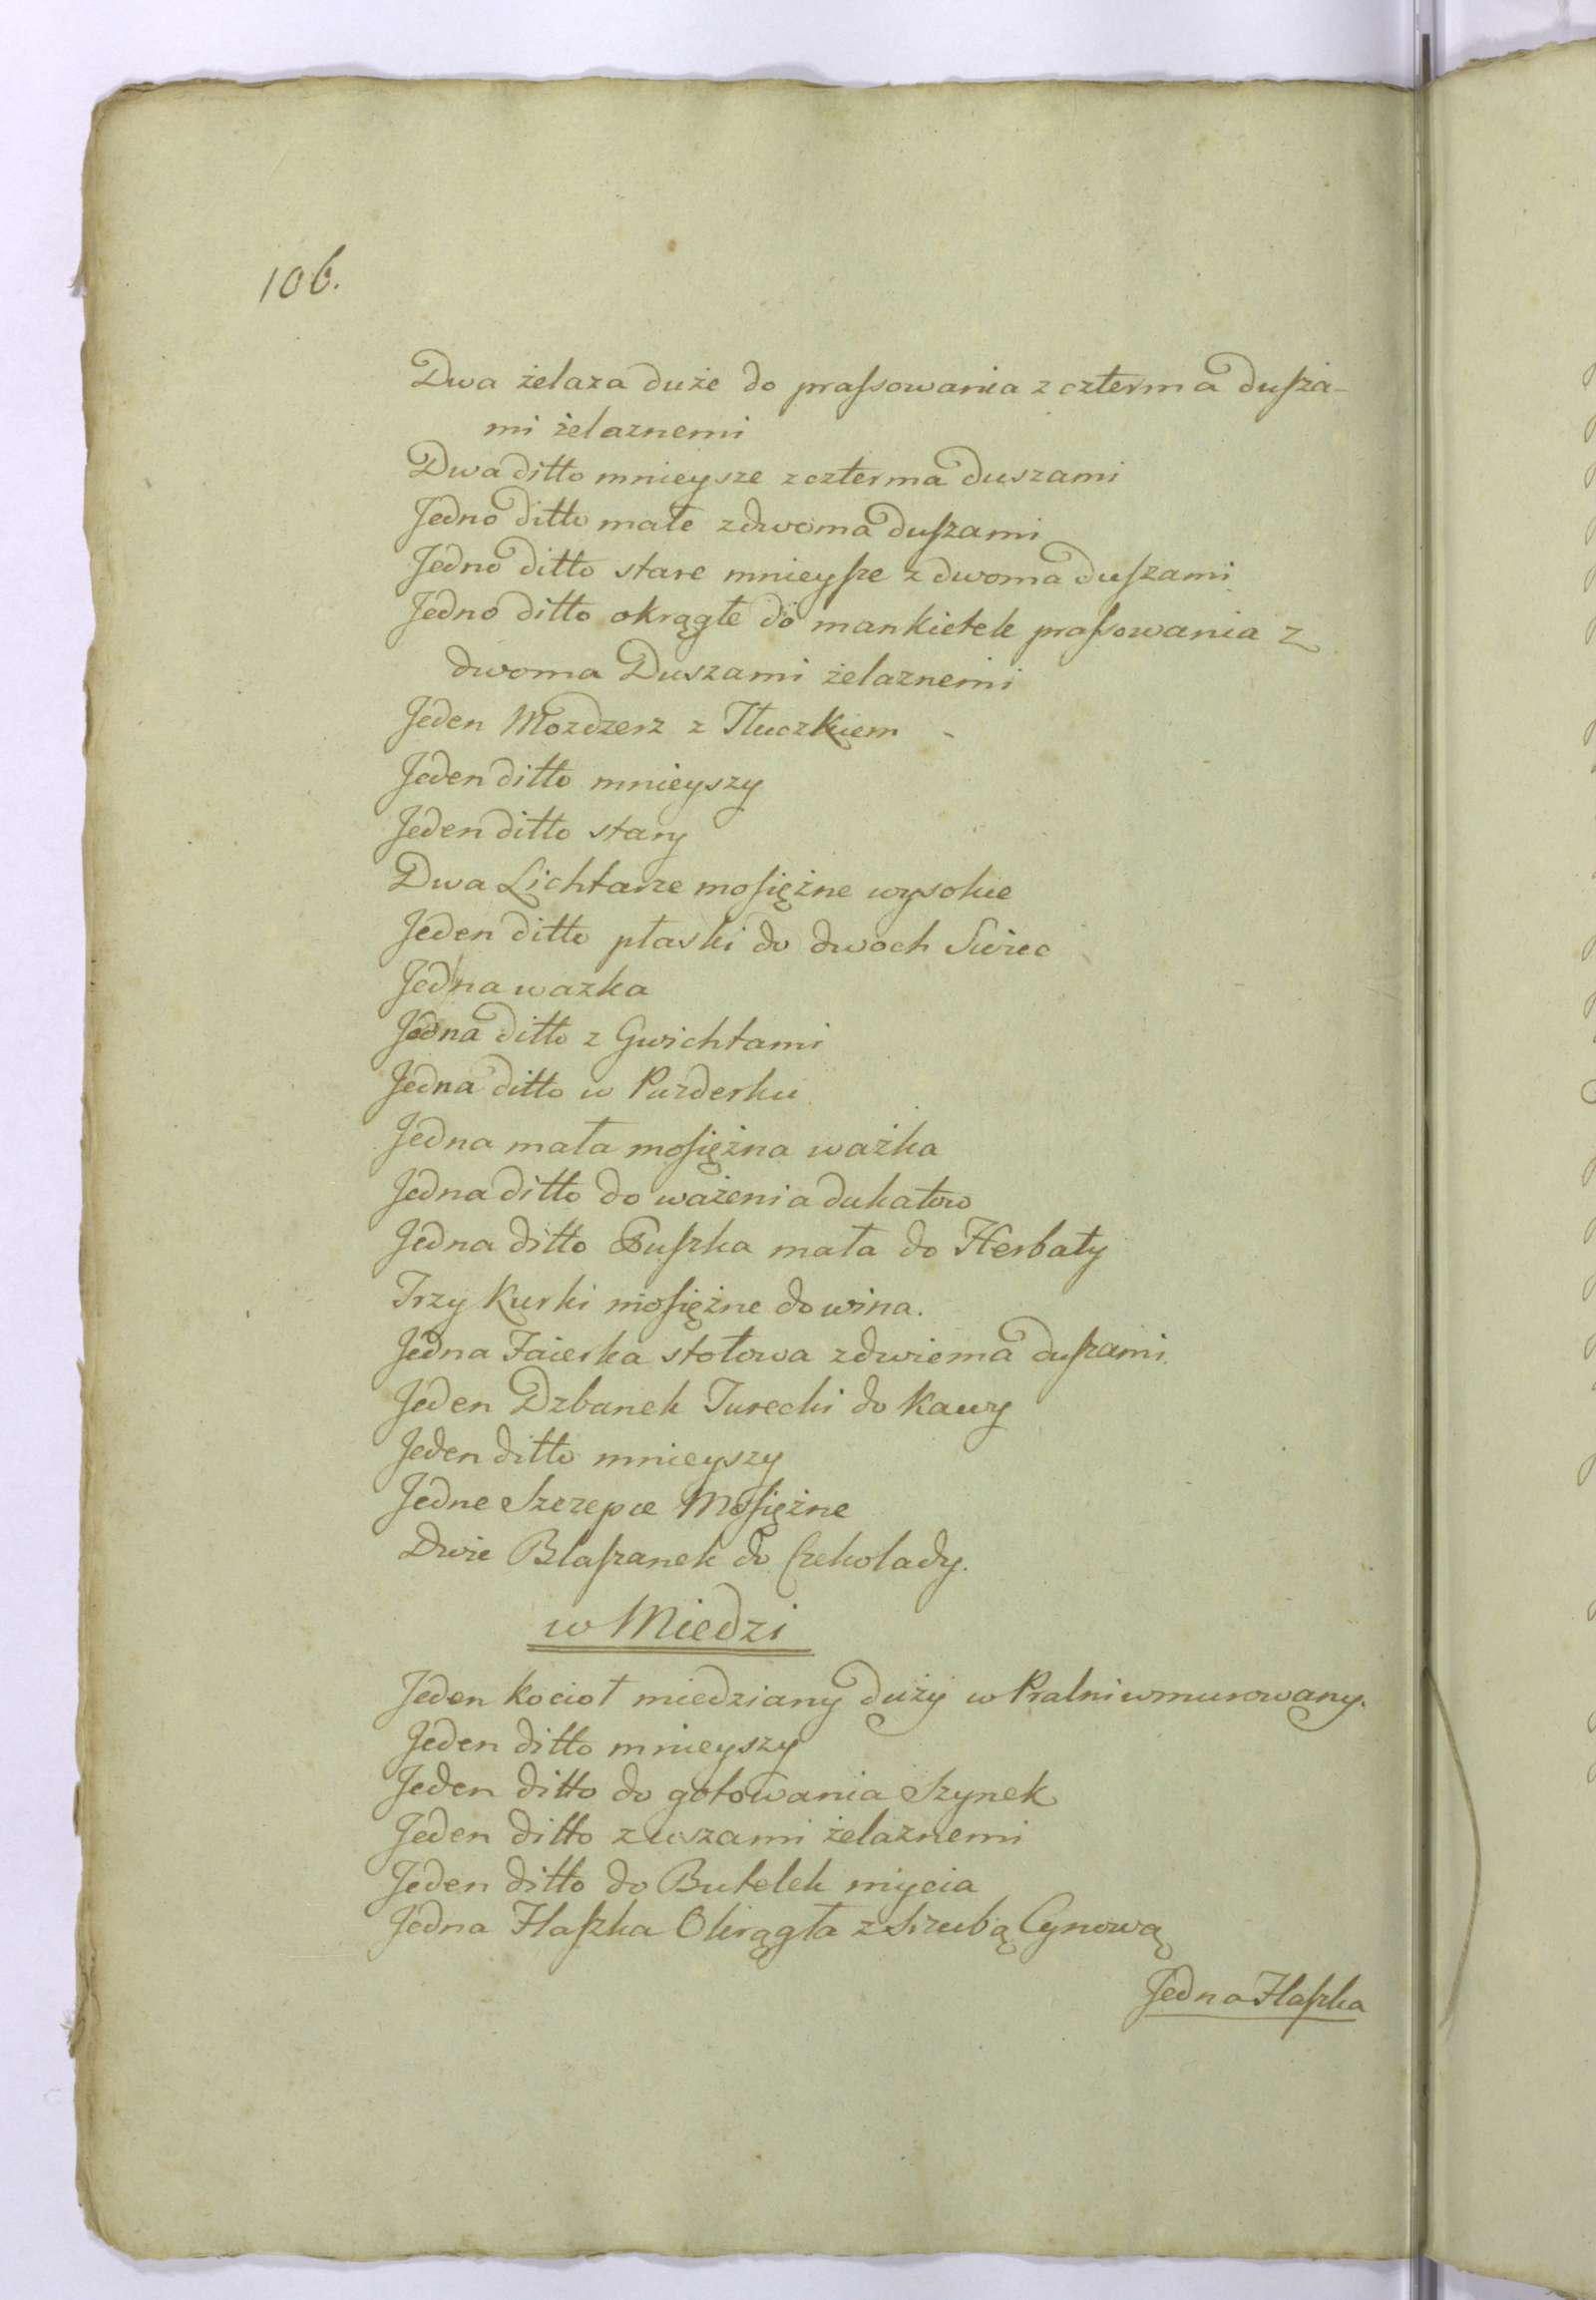 106.
Dwa żelaza duże do praſsowania z czterma duſza-
mi żelaznemi
Dwa ditto mnieysze z czterma duszami
Jedno ditto małe z dwoma duſzami
Jedno ditto stare mnieyſze z dwoma duſzami
Jedno ditto okrągłe do mankietek praſsowania z
dwoma Duszami żelaznemi
Jeden Mozdzerz z Tłuczkiem
Jeden ditto mnieyszy
Jeden ditto stary
Dwa Lichtarze moſiężne wysokie
Jeden ditto płaski do dwoch Swiec
Jedna wazka
Jedna ditto z Gwichtami
Jedna ditto w Puzderku
Jedna mała moſiężna ważka
Jedna ditto do ważenia dukatow
Jedna ditto Puſzka mała do Herbaty
Trzy Kurki moſiężne do wina.
Jedna Faierka stołowa z dwiema duſzami
Jeden Dzbanek Turecki do Kawy
Jeden ditto mnieyszy
Jedne Szczypce Moſiężne
Dwie Blaſzanek do Czekolady.
w Miedzi
Jeden kocioł miedziany duży w Pralni wmurowany.
Jeden ditto mnieyszy
Jeden ditto do gotowania Szynek
Jeden ditto z uszami żelaznemi
Jeden ditto do Butelek mycia
Jedna Flaſzka Okrągła z Szrubą Cynową
Jedna Flaſzka